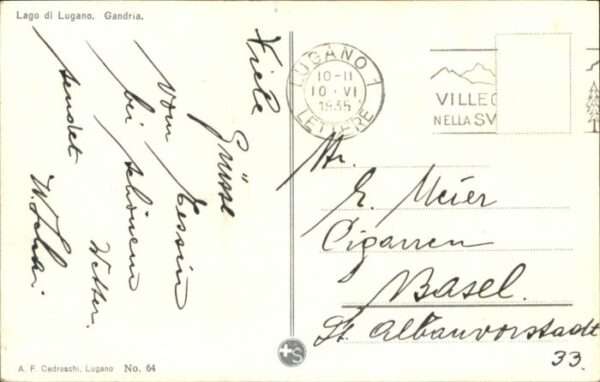 Lago di Lugano. Gandria.
Viele
Grüsse
vom Tessin
bei schönem
Wetter.
sendet
LUGANO 1
10-11
10. VI
1935
LETTERE
VILLEG
NELLA SV
Hr.
E. Meier
Cigarren
Basel.
St. Albanvorstadt
33.
+S
A. F. Cedreschi, Lugano No. 64